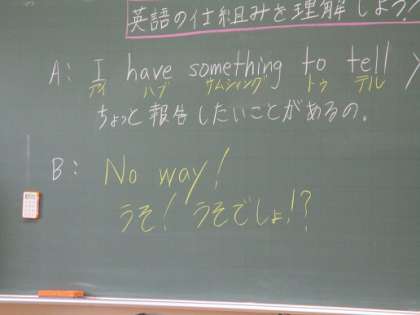 英語の仕組みを理解しよう!
A: I have something to tell y
アイ ハブ サムシィング トゥ テル
ちょっと報告したいことがあるの。
B: No way!
うそ! うそでしょ!?